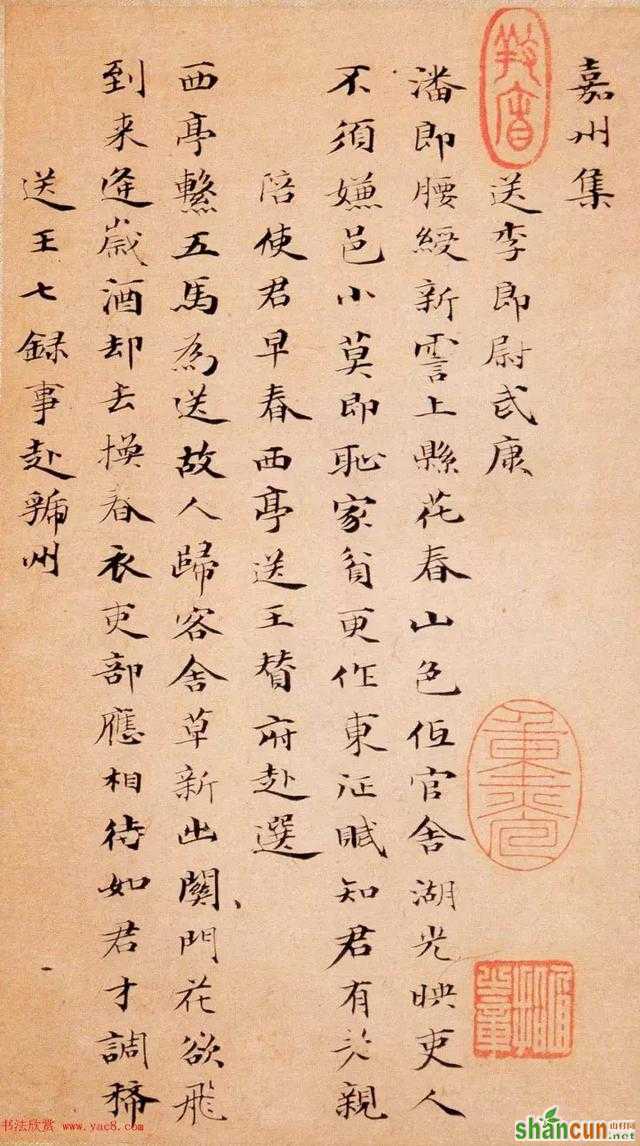 嘉州集
送李郎尉武康
潘郎腰綬新霅上縣花春山色低官舍湖光映吏人
不須嫌邑小莫即恥家貧更作東征賦知君有老親
陪使君早春西亭送王贊府赴選
西亭繫五馬為送故人歸客舍草新出關門花欲飛
到来逢歲酒却去換春衣吏部應相待如君才調稀
送王七録事赴虢州
书法欣赏 www.yac8.com
shancun
山村网
.net